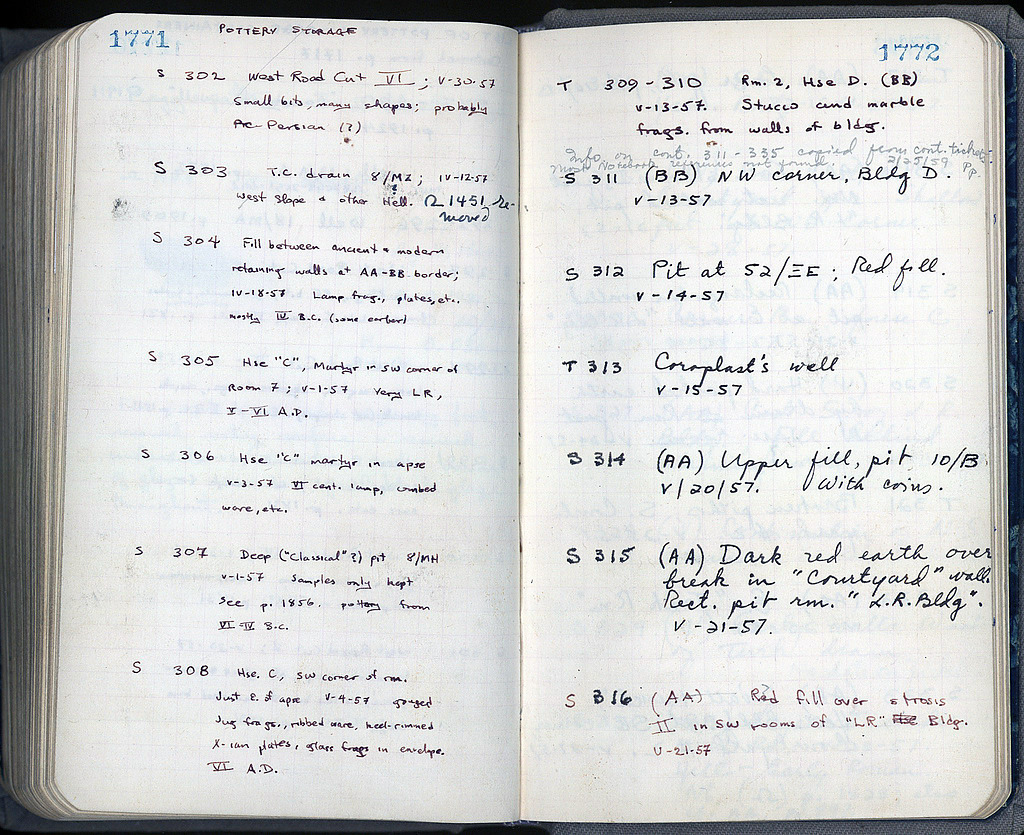 1771
POTTERY STORAGE
S 302 West Road Cut VI ; V-30-57
Small bits, many shapes; probably
Pre-Persian (?)
S 303 T.C. drain 8/MZ ; IV-12-57
West Slope & other Hell. Ω 1451 re-
moved
S 304 Fill between ancient & modern
retaining walls at AA-BB border;
IV-18-57 Lamp frag., plates, etc.
mostly IV B.C. (some earlier)
S 305 Hse "C", Martyr in SW corner of
Room 7 ; V-1-57 Very LR,
V-VI A.D.
S 306 Hse "C" martyr in apse
V-3-57 VI cent. lamp, combed
ware, etc.
S 307 Deep ("Classical"?) pit 8/MH
V-1-57 Samples only kept
See p. 1856. pottery from
VI-IV B.C.
S 308 Hse. C, SW corner of rm.
Just E. of apse V-4-57 gouged
Jug frags., ribbed ware, heel-rimmed
X-ian plates, glass frags in envelope.
VI A.D.
1772
T 309-310 Rm. 2, Hse D. (BB)
V-13-57. Stucco and marble
frags. from walls of bldg.
Info on cont. 311-335 copied from cont. tickets
Most Notebook references not found. 2/25/59 PP.
S 311 (BB) NW corner, Bldg D.
V-13-57
S 312 Pit at 52/ΞE ; Red fill.
V-14-57
T 313 Coroplast's well
V-15-57
S 314 (AA) Upper fill, pit 10/B
V/20/57. With coins.
S 315 (AA) Dark red earth over
break in "Courtyard" wall.
Rect. pit rm. "L.R. Bldg".
V-21-57.
S 316 (AA) Red fill over strosis
II in SW rooms of "LR" Bldg.
V-21-57